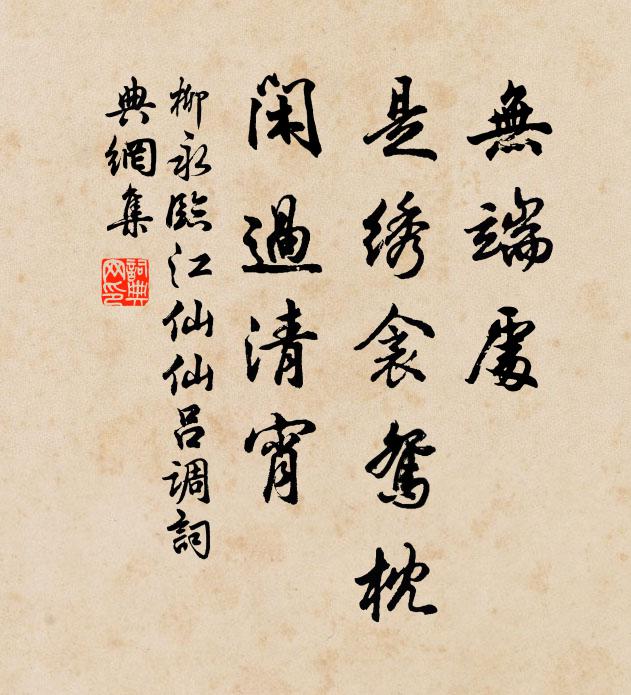 無端處
是綉衾鴛枕
閑過清宵
柳永臨江仙仙呂調詞
典網集
詞典網印